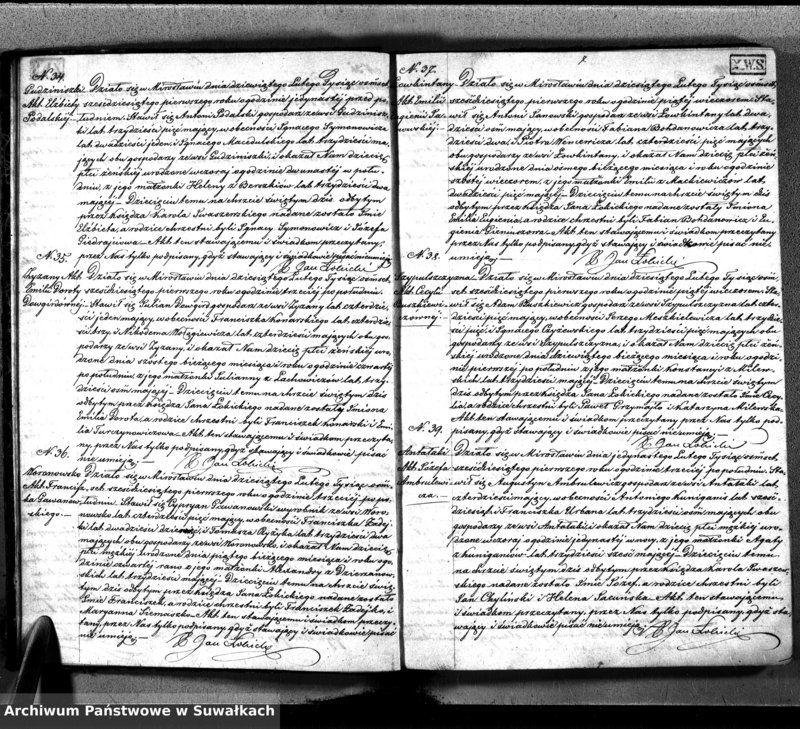 N. 34.
Pudziniszki Działo się w Mirosławiu dnia dziewiątego Lutego Tysiąc ośmset
Akt Elżbiety sześćdziesiątego pierwszego roku o godzinie jedynastej przed po
Podalskiej. łudniem. Stawił się Antoni Podalski gospodarz ze wsi Pudzinisz
ki lat trzydzieści pięć mający, w obecności Ignacego Symonowicza
lat dwadzieścia jeden i Ignacego Macedulskiego lat trzydzieści ma
jących obu gospodarzy ze wsi Pudziniszki, i okazał Nam dziecię
płci żeńskiej urodzone wczoraj o godzinie dwunastej w połu
dniu, z jego małżonki Heleny z lat trzydzieści dwa
mającej. Dziecięciu temu na chrzcie świętym dziś odbytym
przez księdza Karola Iwaszewskiego nadane zostało Imie
Elżbieta, a rodzice chrzestni byli Ignacy Symonowicz i Józefa
Akt ten stawającemu i świadkom przeczytany,
przez Nas tylko podpisany, gdyż stawający i świadkowie pisać nie umieją
X Jan Łobicki
N. 35.
Zyzany Akt Działo się w Mirosławiu dnia dziesiątego Lutego Tysiąc ośm
Emilii Doroty set sześćdziesiątego pierwszego roku o godzinie trzeciej po południu.
Stawił się gospodarz ze wsi Zyzany lat czterdzie
ści jeden mający, w obecności Franciszka Konarskiego lat czterdzie
ści trzy i Nikodema lat czterdzieści mających obu gos
podarzy ze wsi Zyzany i okazał Nam dziecię płci żeńskiej uro
dzone dnia szóstego bieżącego miesiąca i roku o godzinie czwartej
po południu z jego małżonki Julianny z Lachowiczów lat trzy
dzieści ośm mającej. Dziecięciu temu na chrzcie świętym dziś
odbytym przez księdza Jana Łobickiego nadane zostały Imiona
Emilia Dorota, a rodzice chrzestni byli Franciszek Konarski i Emi
lia Akt ten stawającemu i świadkom przeczyta
ny, przez Nas tylko podpisany gdyż stawający i świadkowie pisać
nie umieją
X Jan Łobicki
N. 36.
Woronowsko Działo się w Mirosławiu dnia dziesiątego Lutego Tysiąc ośm
Akt Francisz set sześćdziesiątego pierwszego roku o godzinie trzeciej po po
ka łudniu. Stawił się Cypryan wyrobnik ze wsi Woro
nowsko lat czterdzieści pięć mający, w obecności Franciszka
lat dwadzieścia i Tomasza lat trzydzieści dwa
mających obu gospodarzy ze wsi Woronowsko, i okazał Nam dziecię
płci męzkiej urodzone dnia piątego bieżącego miesiąca i roku o go
dzinie czwartej rano z jego małżonki Alexandry z
lat trzydzieści mającej. Dziecięciu temu na chrzcie świę
tym dziś odbytym przez księdza Jana Łobickiego nadane zostało
Imie Franciszek, a rodzice chrzestni byli Franciszek i
Maryanna Akt ten stawającemu i świadkom przeczy
tany, przez Nas tylko podpisany, gdyż stawający i świadkowie pisać
nie umieją
X Jan Łobicki
X.W.S.
N. 37.
Łowkintany Działo się w Mirosławiu dnia dziesiątego Lutego Tysiąc ośmset
Akt Emilii sześćdziesiątego pierwszego roku o godzinie piątej wieczorem. Sta
Eugenii Sa wił się Antoni Sanowski gospodarz ze wsi Łowkintany lat dwa
nowskiej. dzieścia ośm mający, w obecności Fabiana Bohdanowicza lat trzy
dzieści dwa, i Piotra lat czterdzieści pięć mających
obu gospodarzy ze wsi Łowkintany, i okazał Nam dziecię płci żeń
skiej urodzone dnia ósmego bieżącego miesiąca i roku o godzinie
szóstej wieczorem, z jego małżonki Emilii z Mackiewiczów lat
dwadzieścia pięć mającej. Dziecięciu temu na chrzcie świętym dziś
odbytym przez księdza Jana Łobickiego nadane zostały Imiona
Emilia Eugenia, a rodzice chrzestni byli Fabian Bohdanowicz i Eu
genia Akt ten stawającemu i świadkom przeczytany
przez Nas tylko podpisany, gdyż stawający i świadkowie pisać nie
umieją
X Jan Łobicki
N. 38.
Szypulszczyzna Działo się w Mirosławiu dnia dziesiątego Lutego Tysiąc ośm
Akt Cecylii set sześćdziesiątego pierwszego roku o godzinie piątej wieczorem. Sta
wił się Adam gospodarz ze wsi Szypulszczyzna lat czter
dzieści pięć mający, w obecności Jerzego Moszkielewicza lat trzydzie
ści pięć, i Ignacego lat trzydzieści pięć mających obu
gospodarzy ze wsi Szypulszczyzna, i okazał Nam dziecię płci żeń
skiej urodzone dnia dziewiątego bieżącego miesiąca i roku o godzi
nie pierwszej po południu z jego małżonki Konstancyi z Milew
skich lat trzydzieści mającej. Dziecięciu temu na chrzcie świętym
dziś odbytym przez księdza Jana Łobickiego nadane zostało Imie Cecy
lia, a rodzice chrzestni byli Paweł Grzymajło i Katarzyna Milewska
Akt ten stawającemu i świadkom przeczytany, przez Nas tylko po
dpisany, gdyż stawający i świadkowie pisać nie umieją
X Jan Łobicki
N. 39.
Antałaki Działo się w Mirosławiu dnia jedynastego Lutego Tysiąc ośmset
Akt Józefa sześćdziesiątego pierwszego roku o godzinie trzeciej po południu. Sta
Ambrulewi wił się Augustyn Ambrulewicz gospodarz ze wsi Antałaki lat
cza. czterdzieści mający, w obecności Antoniego Kuniganis lat sześć
dziesiąt i Franciszka Urbana lat trzydzieści mających obu
gospodarzy ze wsi Antałaki, i okazał Nam dziecię płci męzkiej uro
dzone wczoraj o godzinie jedynastej w nocy, z jego małżonki Agaty
z Kuniganów lat trzydzieści sześć mającej. Dziecięciu temu
na chrzcie świętym dziś odbytym przez księdza Karola Iwaszew
skiego nadane zostało Imie Józef, a rodzice chrzestni byli
Jan i Helena Akt ten stawającemu
i świadkom przeczytany, przez Nas tylko podpisany, gdyż sta
wający i świadkowie pisać nie umieją
X Jan Łobicki
Archiwum Państwowe w Suwałkach